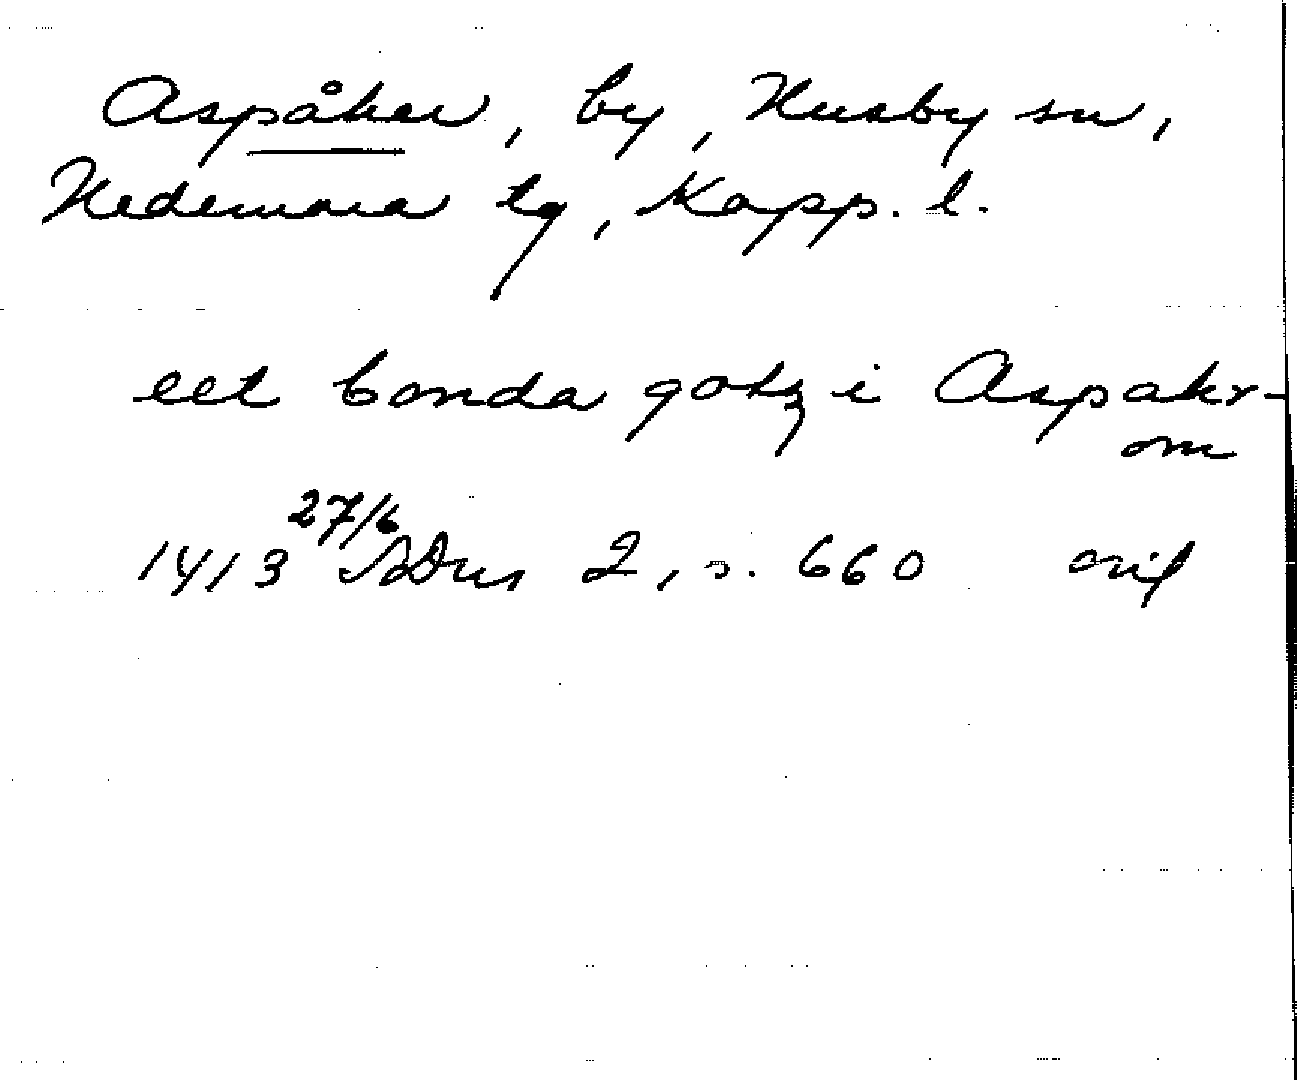 Aspåker, by, Husby sn,
Hedemora tg, Kopp. l.
eet bonda gotz i Aspakr-
om
1413 27/6 SDns 2, s. 660 orig